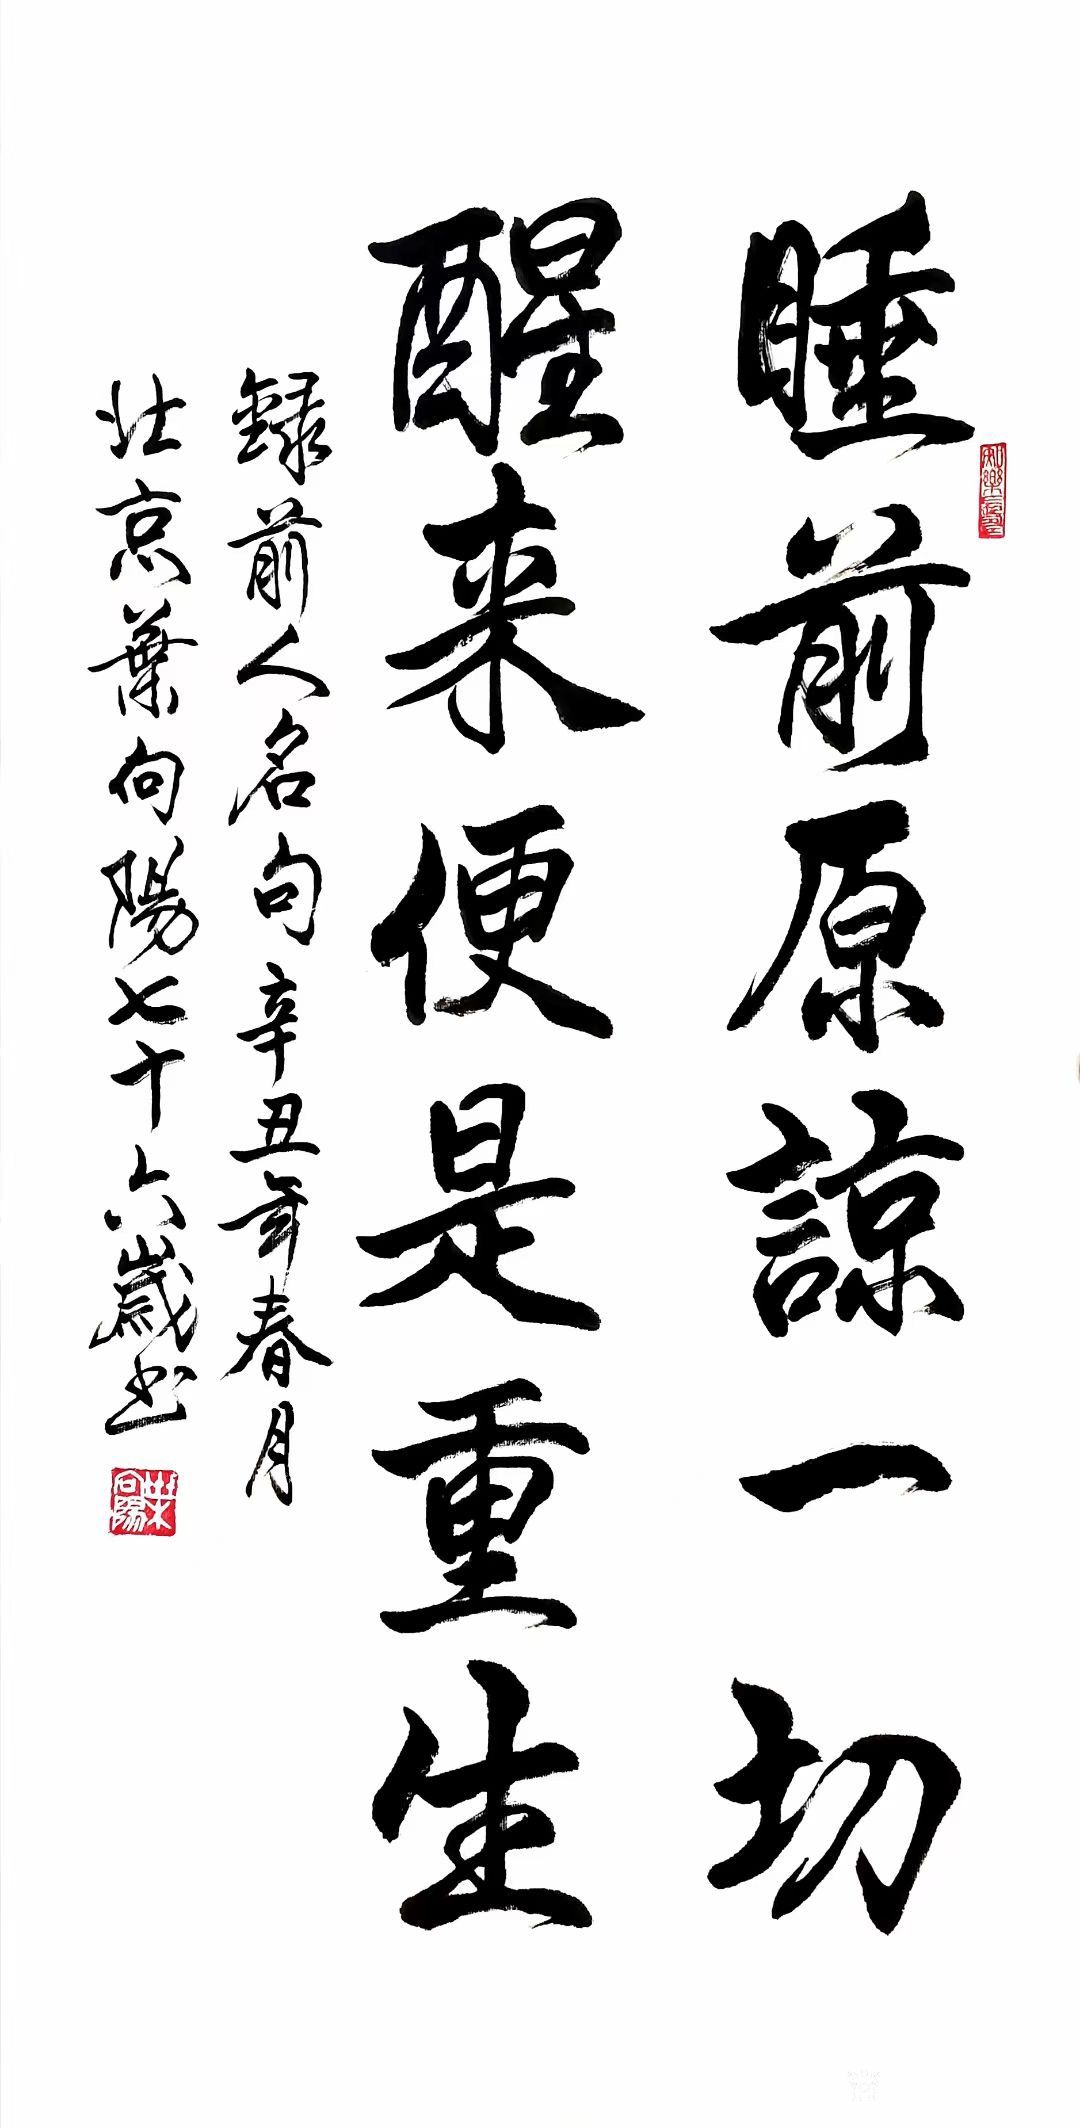 睡前原諒一切
醒来便是重生
録前人名句辛丑年春月
北京葉向陽七十六歲书
知樂
葉向陽